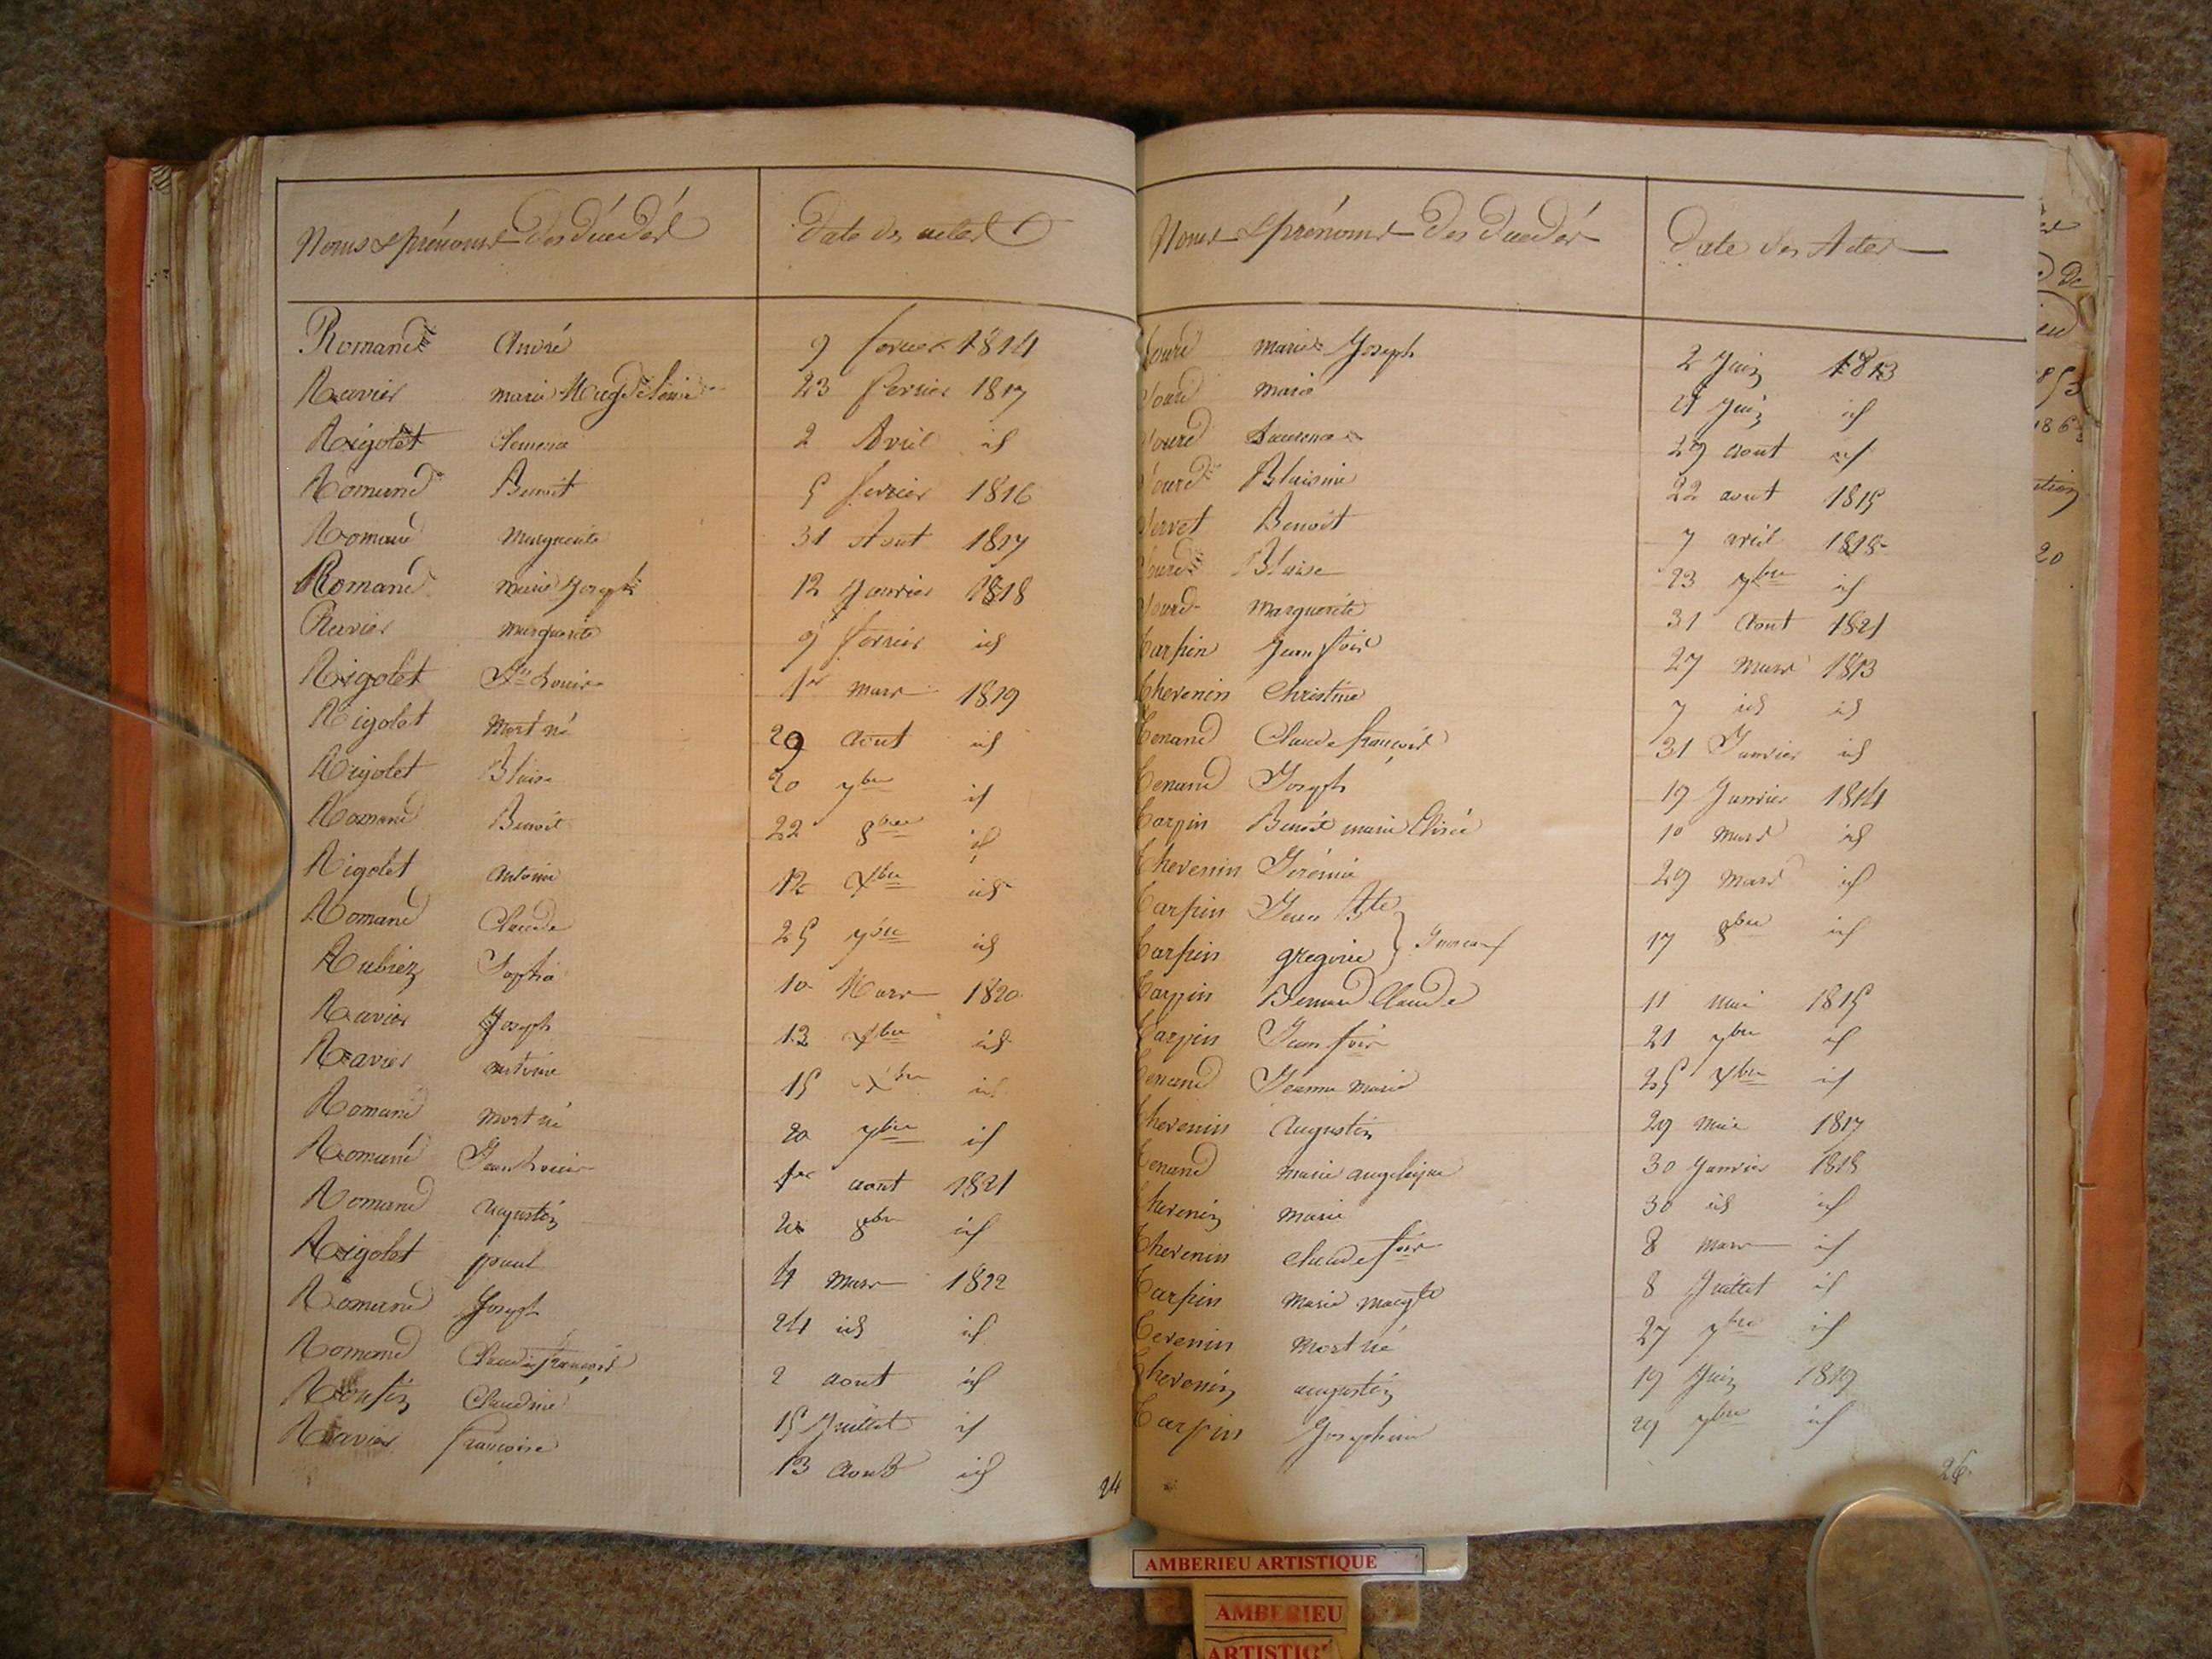 Noms & prénoms des décédés Date des actes
Romand André 9 fevrier 1814
Ravier marie Magdeleine 23 fevrier 1817
Rigolet Clemence 2 Avril id
Romand Benoit 5 fevrier 1816
Romand Marguerite 31 Aout 1817
Romand marie Joseph 12 Janvier 1818
Ravier marguerite 9 fevrier id
Rigolet Louise 1er mars 1819
Rigolet Mort né 29 Aout id
Rigolet Blaise 20 7bre id
Romand Benoit 22 8bre id
Rigolet Antoine 12 Xbre id
Romand Claude 25 7bre id
Rubiez Sophie 10 Mars 1820
Ravier Joseph 13 Xbre id
Ravier antoine 15 Xbre id
Romand Mort né 20 7bre id
Romand Jean Louis 1er aout 1821
Romand augustin 8bre id
Rigolet paul 4 Mars 1822
Romand Joseph 24 id id
Romand Claude françois 2 aout id
Claudine 15 Juillet id
Ravier françoise 13 Aout id
24
Noms & prénoms des décédés Date des Actes
marie Joseph 2 Juin 1813
marie 21 Juin id
29 aout id
Blaisine 22 aout 1815
Benoit 7 avril 1818
Blaise 23 7bre id
Marguerite 31 Aout 1821
Tarpin Jean fois 27 Mars 1813
Thevenin Christine 7 id id
Tenand Claude françois 31 Janvier id
Tenand Joseph 19 Janvier 1814
Tarpin Benoit marie 10 Mars id
Thevenin Jérémie 29 Mars id
Tarpin Jean Bte
Tarpin gregoire } Jumeaux 17 8bre id
Tarpin Bernard Claude 11 Mai 1815
Tarpin Jean fois 21 7bre id
Tenand Jeanne Marie 25 Xbre id
Thevenin Augustin 29 Mai 1817
Tenand marie angelique 30 Janvier 1818
Thevenin Marie 30 id id
Thevenin Claude fois 8 Mars id
Tarpin Marie 8 Juillet id
Tevenin Mort né 27 7bre id
Thevenin augustin 19 Juin 1819
Tarpin Josephine 29 7bre id
26
AMBERIEU ARTISTIQUE
AMBERIEU
ARTISTIQ